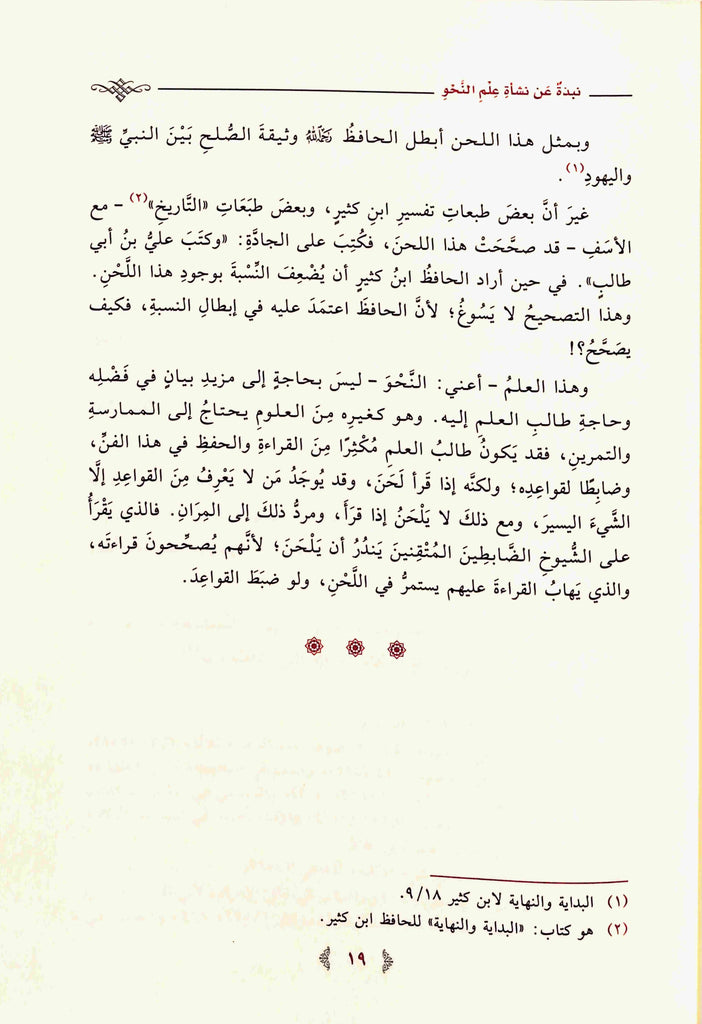 نبذةٌ عَن نشأةِ عِلْمِ النَّحْوِ
وبمثل هذا اللحن أبطل الحافظُ رَحِمَهُ اللهُ وثيقةَ الصُّلحِ بَيْنَ النبيِّ ﷺ
واليهودِ(١).
غيرَ أنَّ بعضَ طبعاتِ تفسيرِ ابنِ كثيرٍ، وبعضَ طبَعَاتِ «التَّاريخِ»(٢) – مع
الأسَفِ – قد صحَّحَتْ هذا اللحنَ، فكُتِبَ على الجادَّةِ: «وكتَبَ عليُّ بنُ أبي
طالبٍ». في حين أراد الحافظُ ابنُ كثيرٍ أن يُضْعِفَ النِّسْبةَ بوجودِ هذا اللَّحْنِ.
وهذا التصحيحُ لا يَسُوغُ؛ لأنَّ الحافظَ اعتمَدَ عليه في إبطالِ النسبةِ، فكيف
يصَحَّحُ؟!
وهذا العلمُ – أعني: النَّحْوَ – ليسَ بحاجةٍ إلى مزيدِ بيانٍ في فَضْلِه
وحاجةِ طالبِ العلمِ إليه. وهو كغيرِه مِنَ العلومِ يحتاجُ إلى الممارسةِ
والتمرينِ، فقد يَكونُ طالبُ العلمِ مُكْثِرًا مِنَ القراءةِ والحفظِ في هذا الفنِّ،
وضابِطًا لقواعِدِه؛ ولكنَّه إذا قَرأ لَحَنَ، وقد يُوجَدُ مَن لا يَعْرِفُ مِنَ القواعِدِ إلَّا
الشَّيءَ اليسيرَ، ومع ذلكَ لا يَلْحَنُ إذا قرَأَ، ومردُّ ذلكَ إلى المِرَانِ. فالذي يَقْرَأُ
على الشُّيوخِ الضَّابطِينَ المُتْقِنينَ يَندُرُ أن يَلْحَنَ؛ لأنَّهم يُصحِّحونَ قراءتَه،
والذي يَهابُ القراءةَ عليهم يستمرُّ في اللَّحْنِ، ولو ضبَطَ القواعِدَ.
(١) البداية والنهاية لابن كثير ٩/١٨.
(٢) هو كتاب: «البداية والنهاية» للحافظ ابن كثير.
١٩